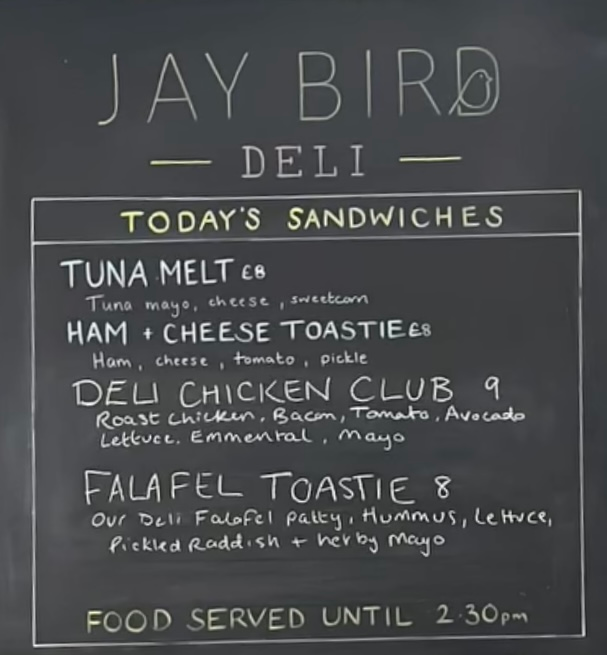 JAY BIRD
DELI
TODAY'S SANDWICHES
TUNA MELT £8
Tuna mayo, cheese, sweetcorn
HAM + CHEESE TOASTIE £8
Ham, cheese, tomato, pickle
DELI CHICKEN CLUB 9
Roast chicken, Bacon, Tomato, Avocado
Lettuce, Emmental, Mayo
FALAFEL TOASTIE 8
Our Deli Falafel patty, Hummus, Lettuce,
Pickled Raddish + herby Mayo
FOOD SERVED UNTIL 2.30pm